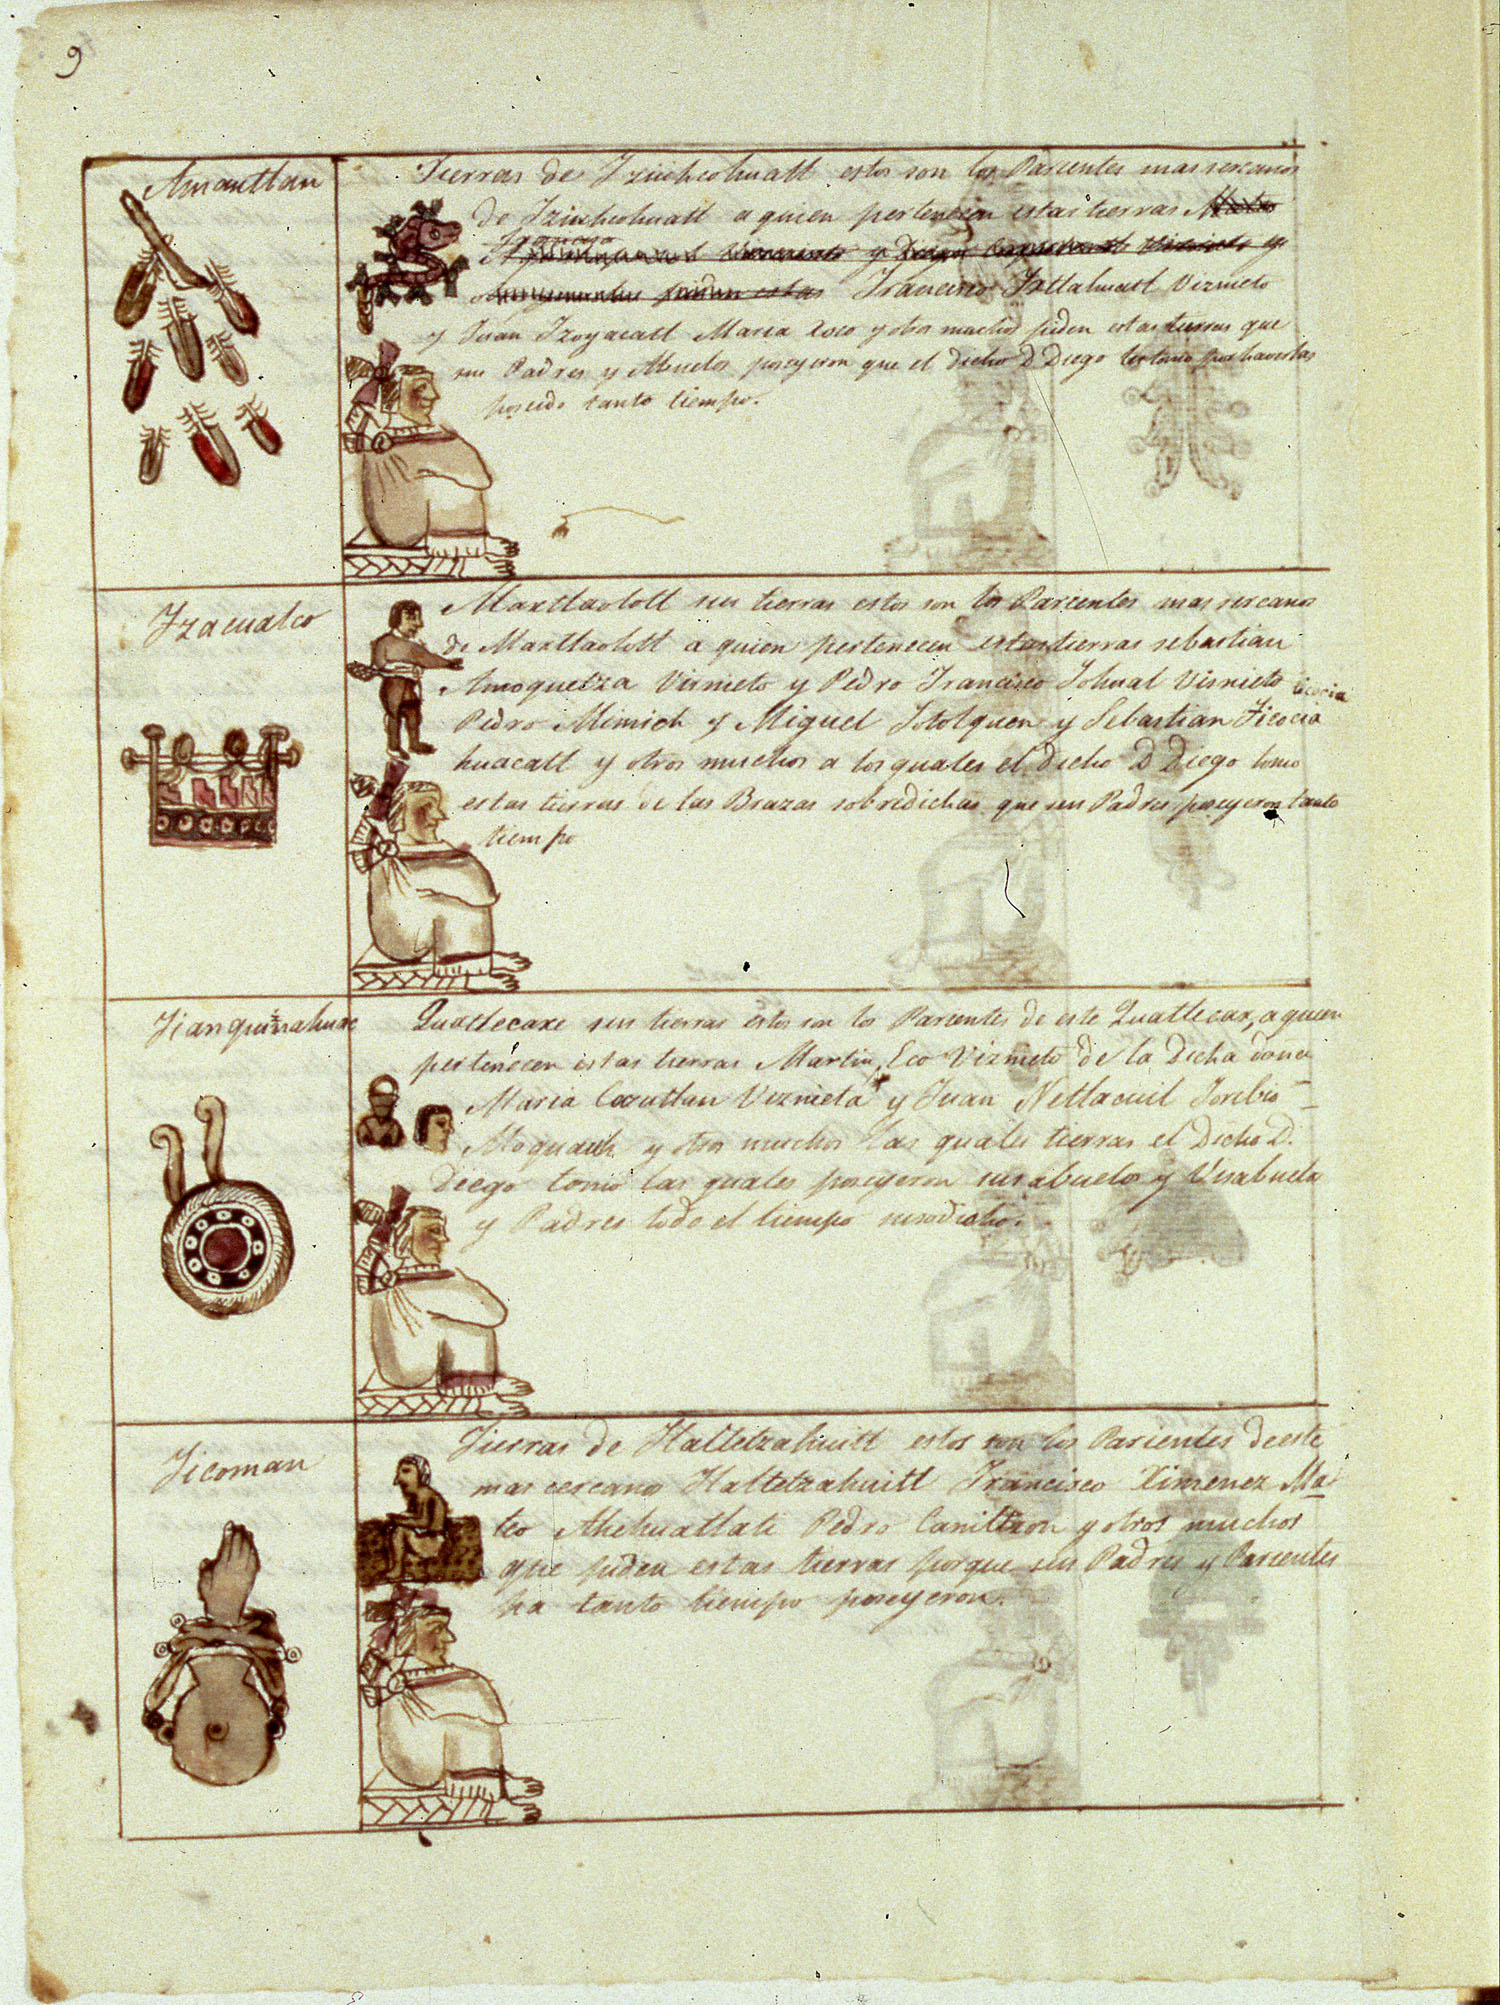 9
Amantlan
Tierras de Tziuhcohuatl estos son los Parientes mas sercanos
de Tziuhcohuatl a quien pertenecen estas tierras
Francisco Ixtlahuatl Viznieto
y Juan Tzoyacatl Maria Xoco y otros muchos piden estas tierras que
sus Padres y Abuelos poseyeron que el dicho D Diego las tomo por haverlas
poseido tanto tiempo.
Tzacualco
Maxtlacolotl sus tierras estos son los Parientes mas sercanos
de Maxtlacolotl a quien pertenecen estas tierras sebastian
Amoquetza Visnieto y Pedro Francisco Tohual Visnieto
Pedro Mimich y Miguel Totolquen y Sebastian Ticocia
huacatl y otros muchos a los quales el dicho D Diego tomo
estas tierras de las Brazas sobredichas que sus Padres poseyeron tanto
tiempo
Tianquiznahuac
Quatlecaxe sus tierras estos son los Parientes de este Quatlecax, a quien
pertenecen estas tierras Martin Eco Viznieto de la dicha
Maria Cozutlan Viznieta y Juan Netlacuil Toribio
Moquauh y otros muchos las quales tierras el Dicho D.
Diego tomo las quales poseyeron sus abuelos y Visabuelos
y Padres todo el tiempo susodicho.
Ticoman
Tierras de Haltetzahuitl estos son los Parientes de este
mas cercano Haltetzahuitl Francisco Ximenez Ma
teo Ahehuatlati Pedro Canitzon y otros muchos
que piden estas tierras porque sus Padres y Parientes
ha tanto tiempo poseyeron.